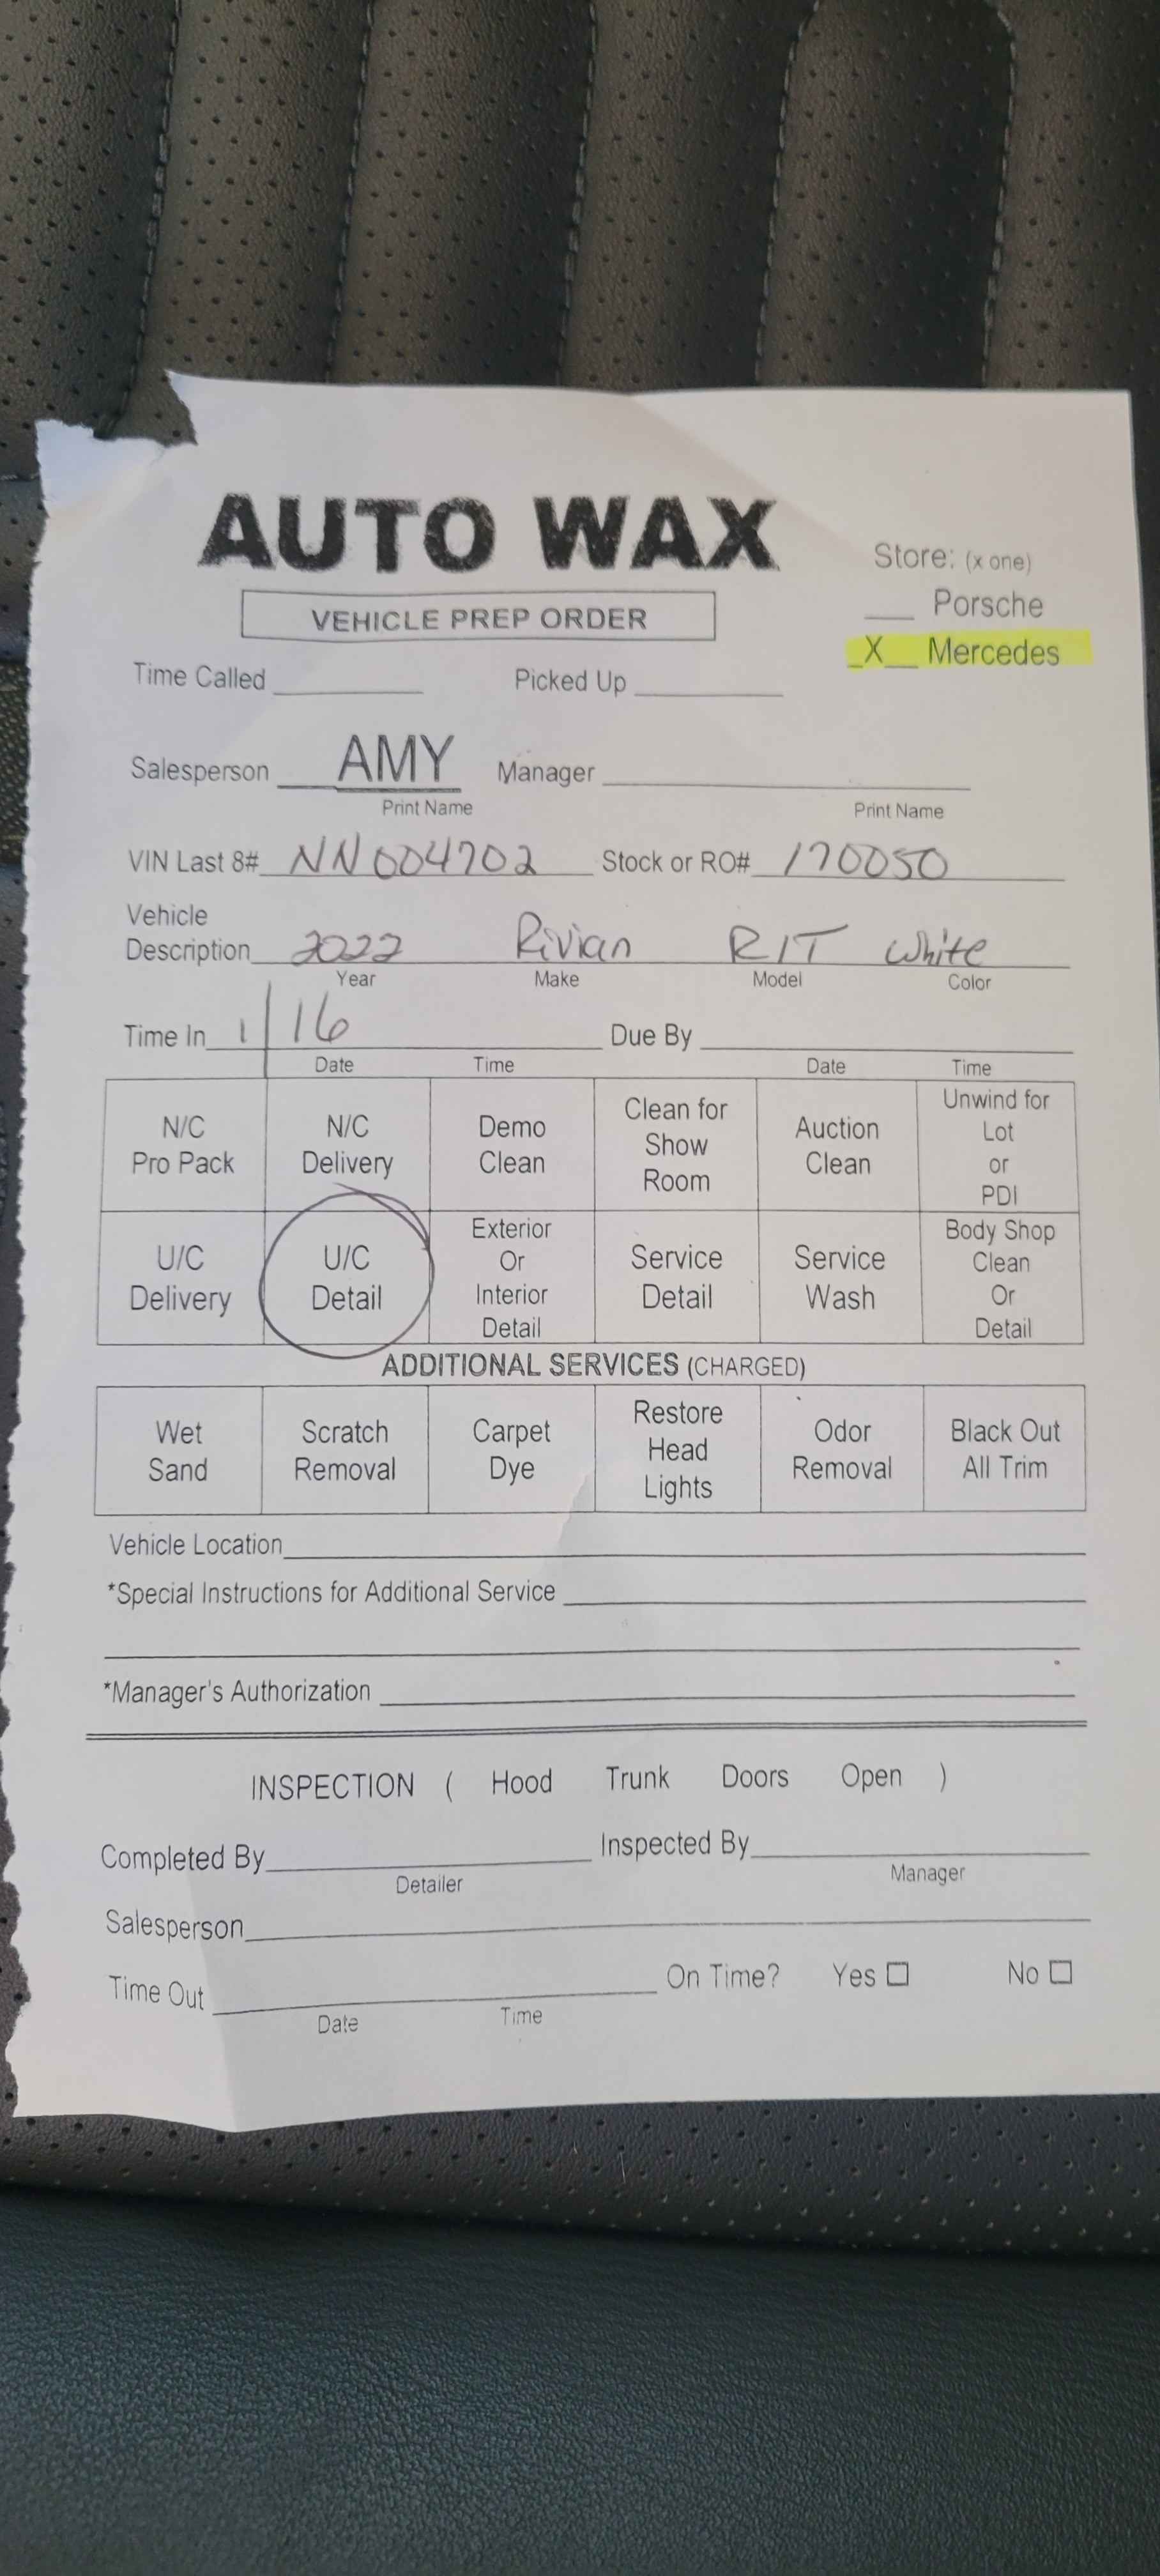 AUTO WAX
Store: (x one)
___ Porsche
VEHICLE PREP ORDER
_X__ Mercedes
Time Called ________ Picked Up ________
Salesperson __AMY Manager ________
Print Name Print Name
VIN Last 8# NN004702 Stock or RO# 170050
Vehicle
Description 2022 Rivian R1T White
Year Make Model Color
Time In 1/16 Due By ________
Date Time Date Time
N/C Pro Pack N/C Delivery Demo Clean Clean for Show Room Auction Clean Unwind for Lot or PDI
U/C Delivery U/C Detail Exterior Or Interior Detail Service Detail Service Wash Body Shop Clean Or Detail
ADDITIONAL SERVICES (CHARGED)
Wet Sand Scratch Removal Carpet Dye Restore Head Lights Odor Removal Black Out All Trim
Vehicle Location ________
*Special Instructions for Additional Service ________
*Manager's Authorization ________
INSPECTION ( Hood Trunk Doors Open )
Completed By ________ Inspected By ________
Detailer Manager
Salesperson ________
Time Out ________ On Time? Yes ☐ No ☐
Date Time